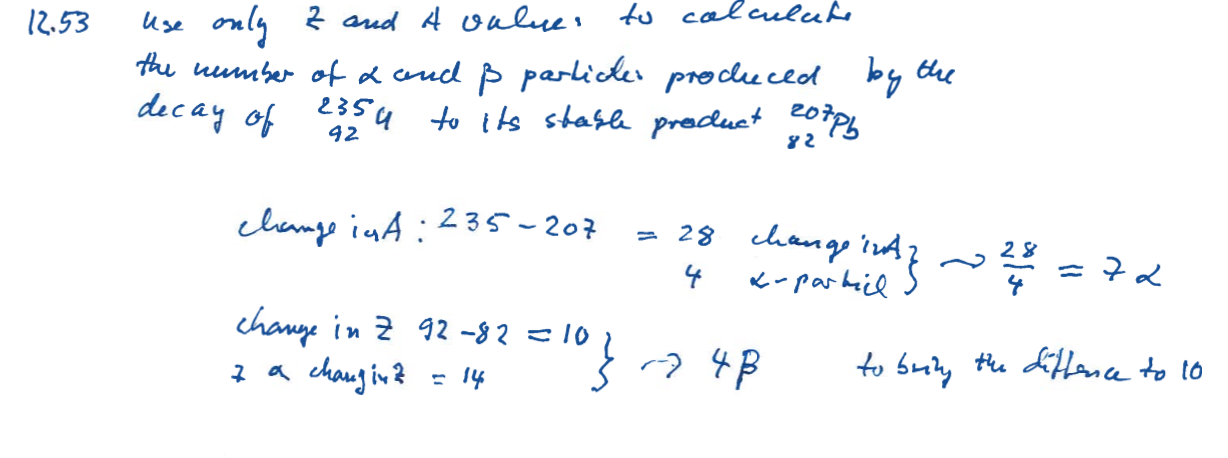 12.53 Use only Z and A values to calculate
the number of α and β particles produced by the
decay of ²³⁵₉₂U to its stable product ²⁰⁷₈₂Pb
change in A : 235 - 207 = 28 change in A } → 28/4 = 7 α
4 α-particle
change in Z 92 - 82 = 10 } → 4β to bring the diffence to 10
7 α chang in Z = 14